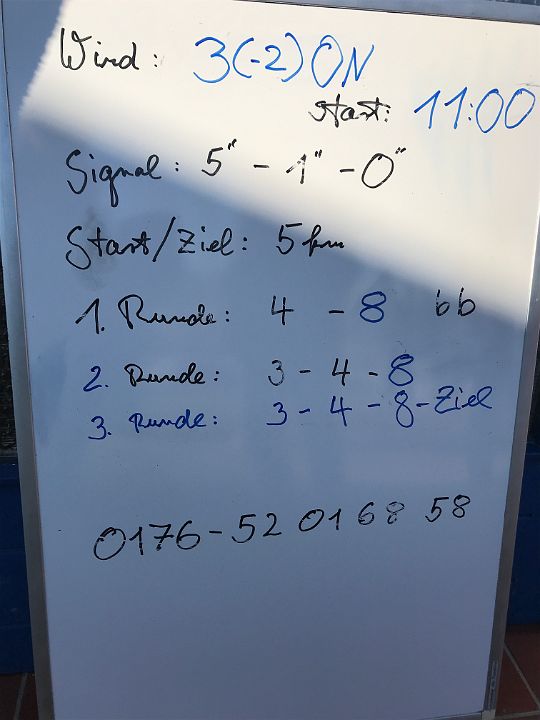 Wind: 3(-2) ON
Start: 11:00
Signal: 5" - 1" - 0"
Start/Ziel: 5 km
1. Runde: 4 - 8 bb
2. Runde: 3 - 4 - 8
3. Runde: 3 - 4 - 8 - Ziel
0176-52 01 68 58